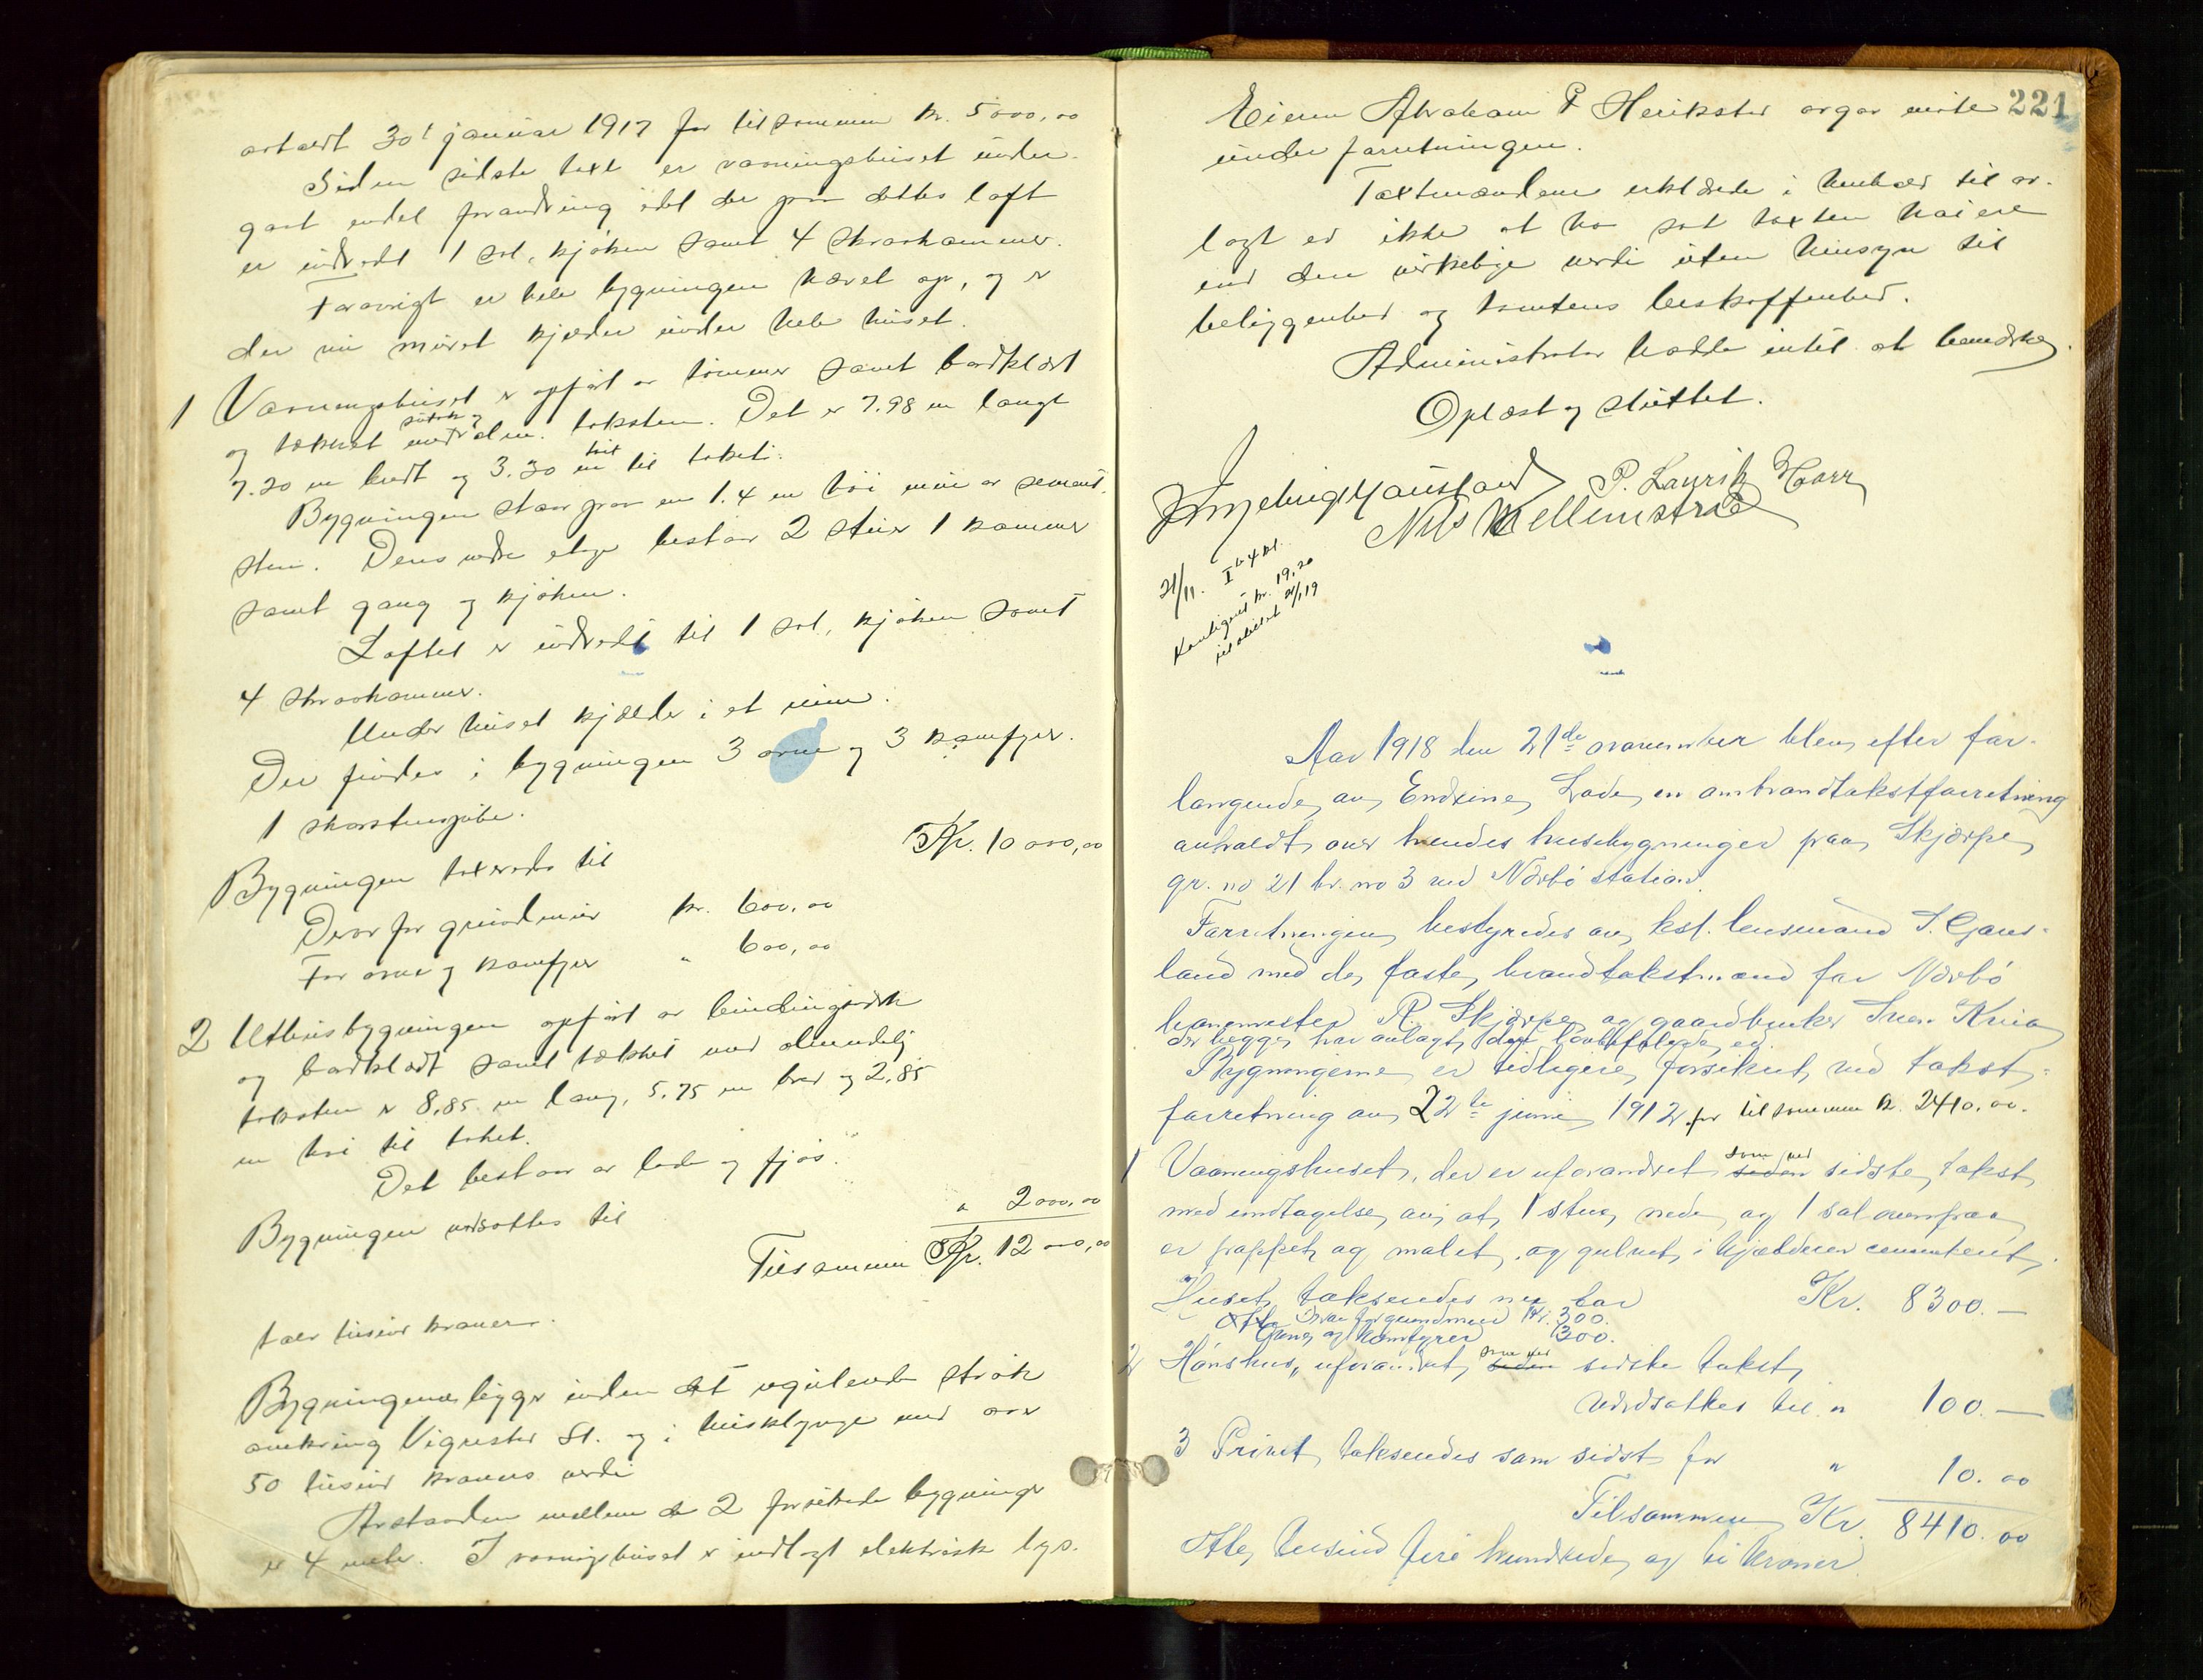 avholdt 30t januar 1917 for tilsammen kr. 5000,00
Siden sidste taxt er vaaningshuset under-
gaat endel forandring idet der paa dettes loft
er indredt 1 sal, kjøken samt 4 skraakammer.
Forøvrigt er hele bygningen hævet op, og er
der nu muret kjelder under hele huset.
1 Vaaningshuset er opført av tømmer samt bordklædt
og tækket med sutak og alm. taksten. Det er 7.98 m langt
7.20 m bredt og 3.30 m høit til taket.
Bygningen staar paa en 1.4 m høi mur av sement-
sten. Dens nedre etage bestaar 2 stuer 1 kammer
samt gang og kjøken.
Loftet er indredt til 1 sal, kjøken samt
4 skraakammer.
Under huset kjælder i et rum.
Der findes i bygningen 3 ovne og 3 komfyer.
1 skorstenspibe.
Bygningen taxeredes til Kr. 10000,00
Derav for grundmur kr. 600,00
For ovne og komfyer " 600,00
2 Uthusbygningen opført av bindingsverk
og bordklædt samt tækket med almindelig
taksten er 8,85 m lang, 5,75 m bred og 2,85
m høi til taket.
Det bestaar av lade og fjøs.
Bygningen værdsættes til " 2000,00
Tilsammen Kr. 12000,00
tolv tusind kroner.
Bygningerne ligger inden det regulerede strøk
omkring Vigrestad St. og i husklynge med over
50 tusind kroners verdi
Avstanden mellem de 2 forsikrede bygninger
er 4 meter. I vaaningshuset er indlagt elektrisk lys.
221
Eieren Abraham P Herikstad avgav møte
under forretningen.
Taxtmændene erklærede i henhold til av-
lagt ed ikke at ha sat taxten høiere
end den virkelige verdi uten hensyn til
beliggenhed og tomtens beskaffenhed.
Administrator hadde intet at bemerke.
Oplæst og sluttet.
P. Laurits Haar
Nils Mellemstrand
21/11. I b 4 kl.
Kontingent kr. 19,20
21/1 19
Aar 1918 den 21de november blev efter for-
langende av Endrine Lode en ombrandtakstforretning
avholdt over hendes husbygninger paa Skjærpe
gr. no 21 br. no 3 ved Nærbø station.
Forretningen bestyredes av kst. lensmand S. Gaus-
land med de faste brandtakstmænd for Nærbø
banemester R. Skjærpe og gaardbruker Sven Kvia
der begge har avlagt den lovbefalede ed.
Bygningerne er tidligere forsikret ved takst-
forretning av 22de juni 1912 for tilsammen kr. 2410.00.
1 Vaaningshuset, der er uforandret siden som ved sidste takst
med undtagelse av, at 1 stue nede og 1 sal ovenpaa
er pappet og malet, og gulvet i kjælderen cementeret.
Huset takseredes nu for Kr. 8300.—
Derav for grundmur Kr. 300.
Ovne og komfyrer 300.
2 Hønshus, uforandret siden som ved sidste takst,
værdsættes til " 100.—
3 Privet takseredes som sidst for " 10.00
Tilsammen Kr. 8410.00
Otte tusind fire hundrede og ti kroner.